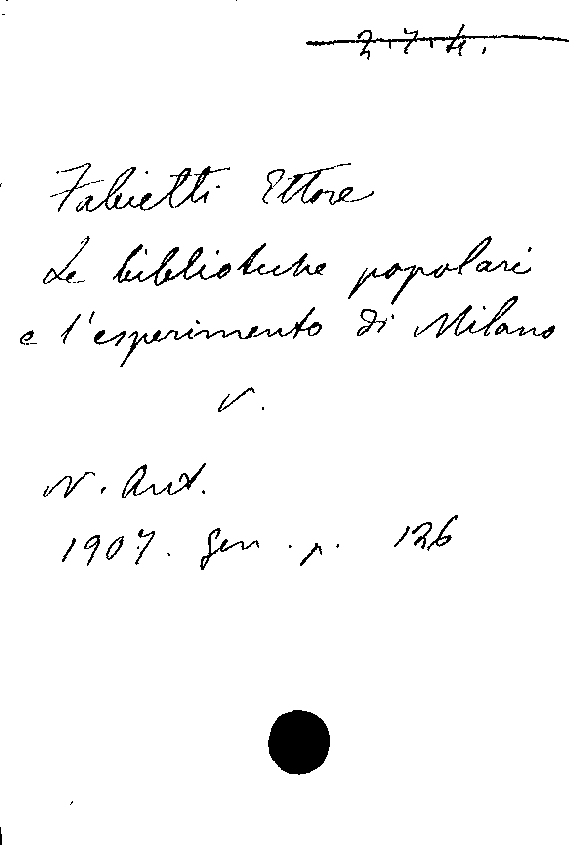 2.7.4.
Fabietti Ettore
Le biblioteche popolari
e l'esperimento di Milano
V.
N. Ant.
1907. Gen. p. 126